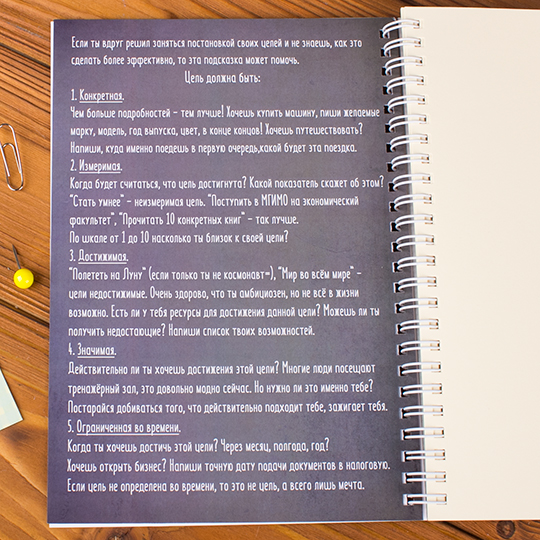 Если ты вдруг решил заняться постановкой своих целей и не знаешь, как это
сделать более эффективно, то эта подсказка может помочь.
Цель должна быть:
1. Конкретная.
Чем больше подробностей – тем лучше! Хочешь купить машину, пиши желаемые
марку, модель, год выпуска, цвет, в конце концов! Хочешь путешествовать?
Напиши, куда именно поедешь в первую очередь,какой будет эта поездка.
2. Измеримая.
Когда будет считаться, что цель достигнута? Какой показатель скажет об этом?
"Стать умнее" – неизмеримая цель. "Поступить в МГИМО на экономический
факультет", "Прочитать 10 конкретных книг" – так лучше.
По шкале от 1 до 10 насколько ты близок к своей цели?
3. Достижимая.
"Полететь на Луну" (если только ты не космонавт=), "Мир во всём мире" –
цели недостижимые. Очень здорово, что ты амбициозен, но не всё в жизни
возможно. Есть ли у тебя ресурсы для достижения данной цели? Можешь ли ты
получить недостающие? Напиши список твоих возможностей.
4. Значимая.
Действительно ли ты хочешь достижения этой цели? Многие люди посещают
тренажёрный зал, это довольно модно сейчас. Но нужно ли это именно тебе?
Постарайся добиваться того, что действительно подходит тебе, зажигает тебя.
5. Ограниченная во времени.
Когда ты хочешь достичь этой цели? Через месяц, полгода, год?
Хочешь открыть бизнес? Напиши точную дату подачи документов в налоговую.
Если цель не определена во времени, то это не цель, а всего лишь мечта.